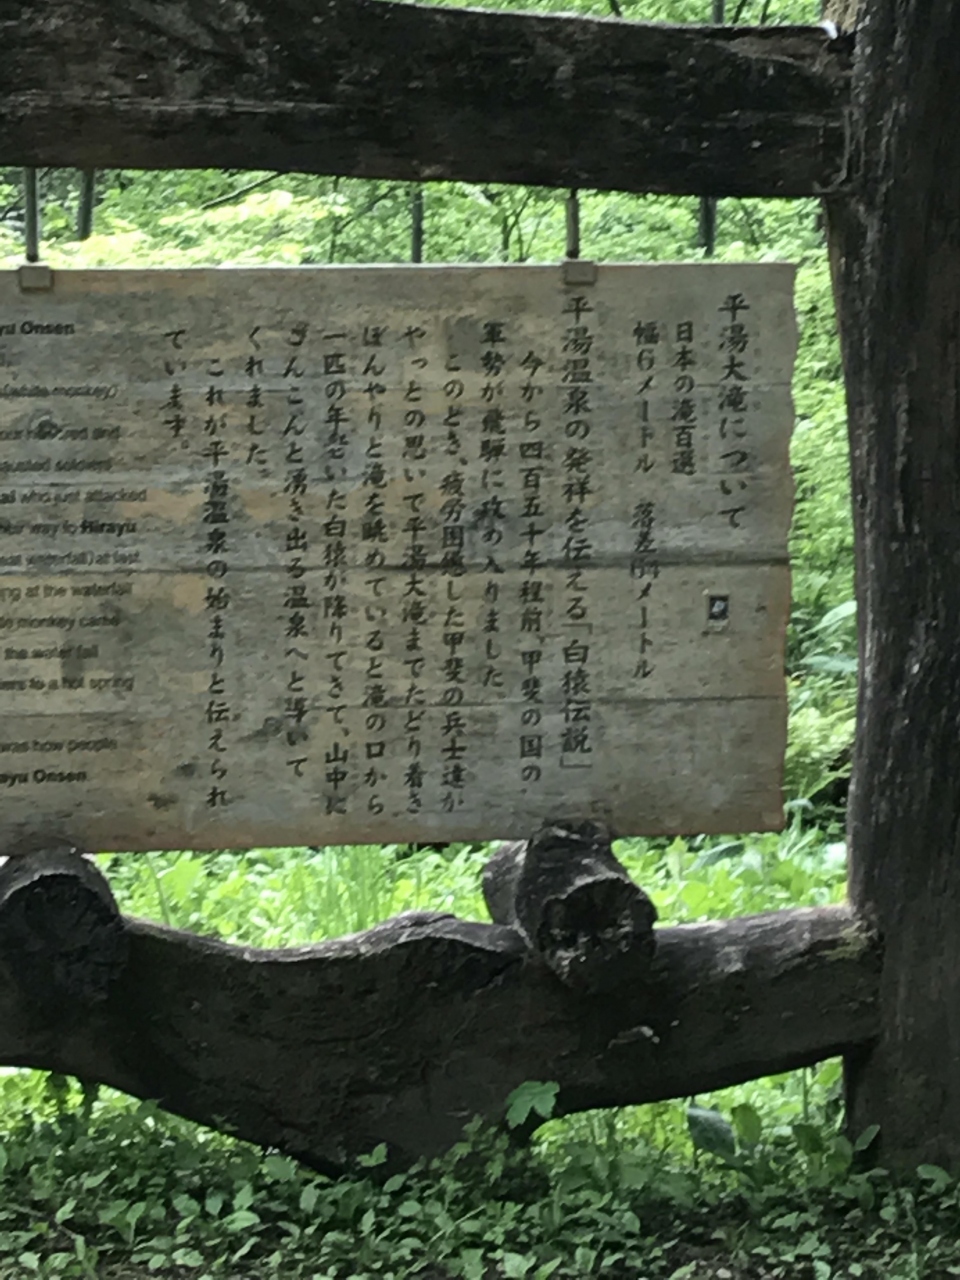 平湯大滝について
日本の滝百選
幅6メートル 落差64メートル
平湯温泉の発祥を伝える「白猿伝説」
今から四百五十年程前、甲斐の国の
軍勢が飛騨に攻め入りました。
このとき、疲労困憊した甲斐の兵士達が
やっとの思いで平湯大滝までたどり着き
ぼんやりと滝を眺めていると滝の口から
一匹の年老いた白猿が降りてきて、山中に
こんこんと湧き出る温泉へと導いて
くれました。
これが平湯温泉の始まりと伝えられ
ています。
yu Onsen
(white monkey)
our hundred and
hausted soldiers
who just attacked
their way to Hirayu
eat waterfall) at last.
ng at the waterfall
monkey came
the water fall
to a hot spring
was how people
ayu Onsen